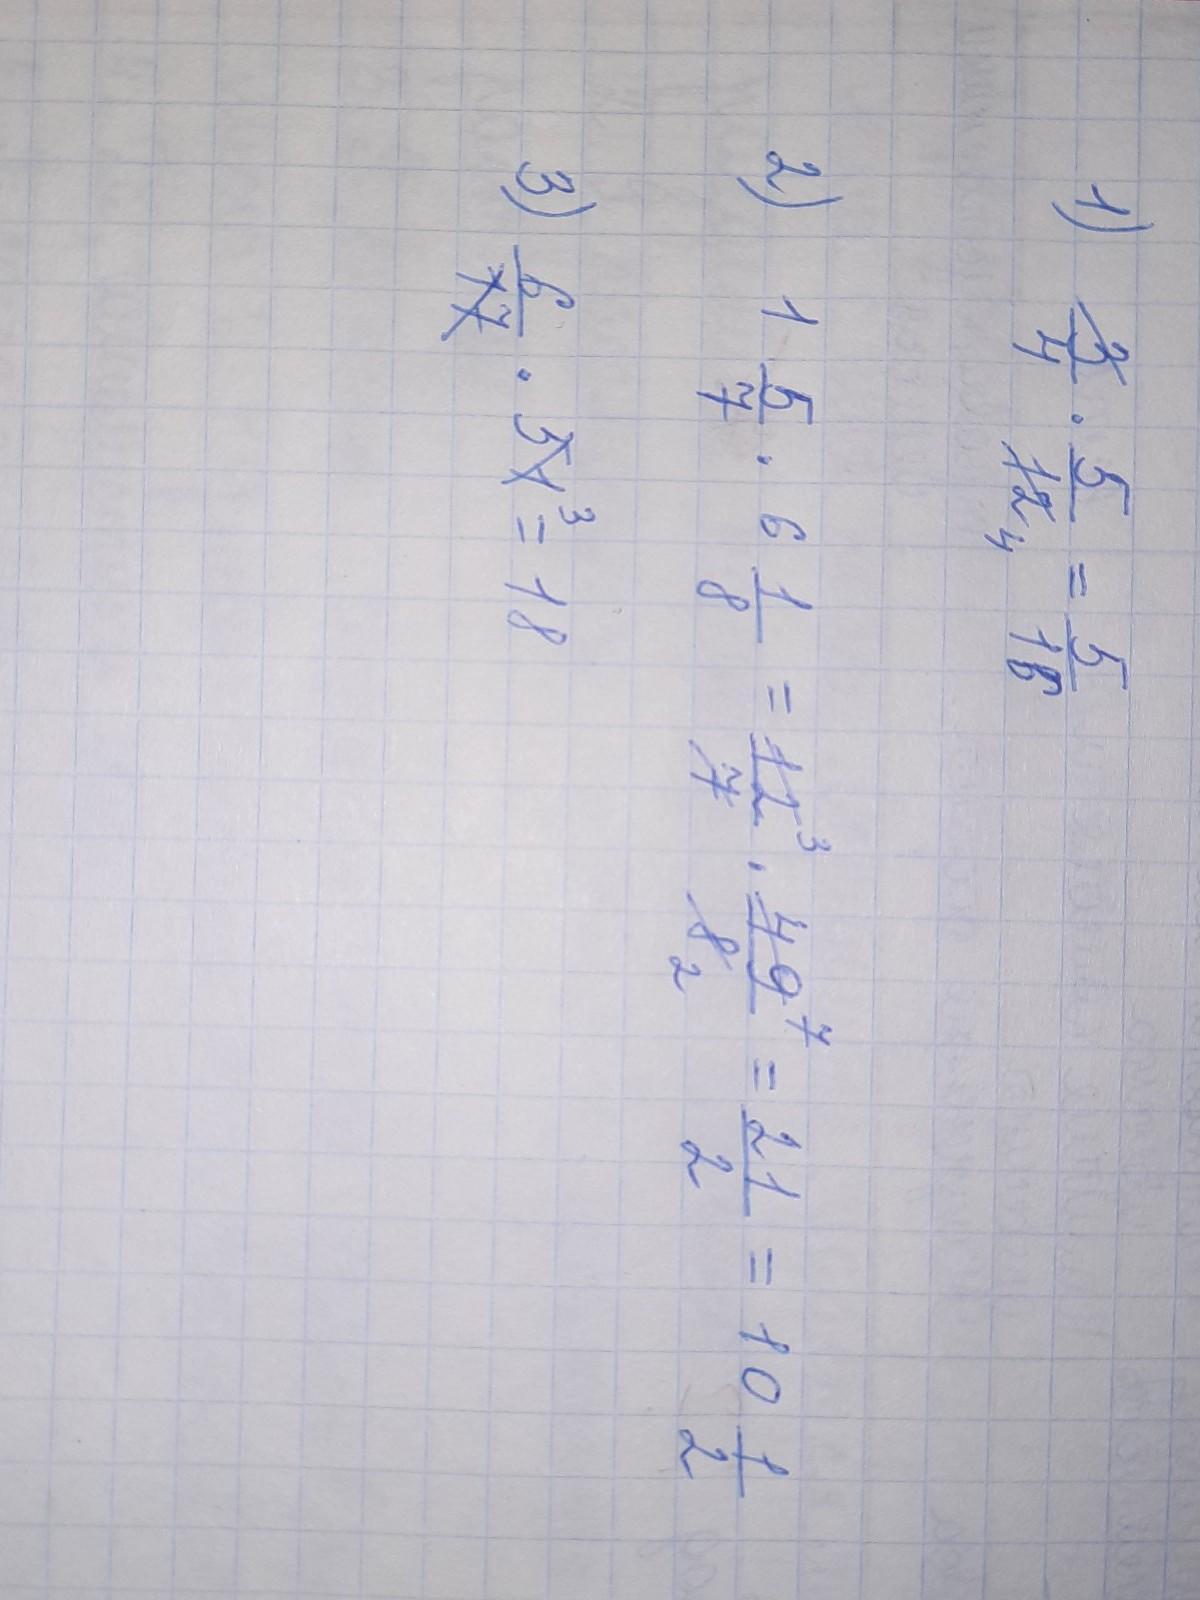 1) 3/4 · 5/12 4 = 5/16
2) 1 5/7 · 6 1/8 = 12 3/7 · 49 7/8 2 = 21/2 = 10 1/2
3) 6/17 · 51 3 = 18